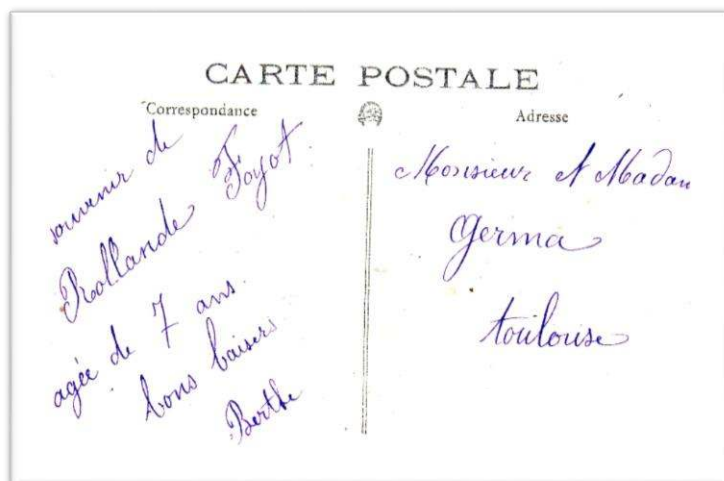 CARTE POSTALE
Correspondance
Adresse
souvenir de
Rollande Foyot
agée de 7 ans.
bons baisers
Berthe
Monsieur et Madan
Germa
toulouse